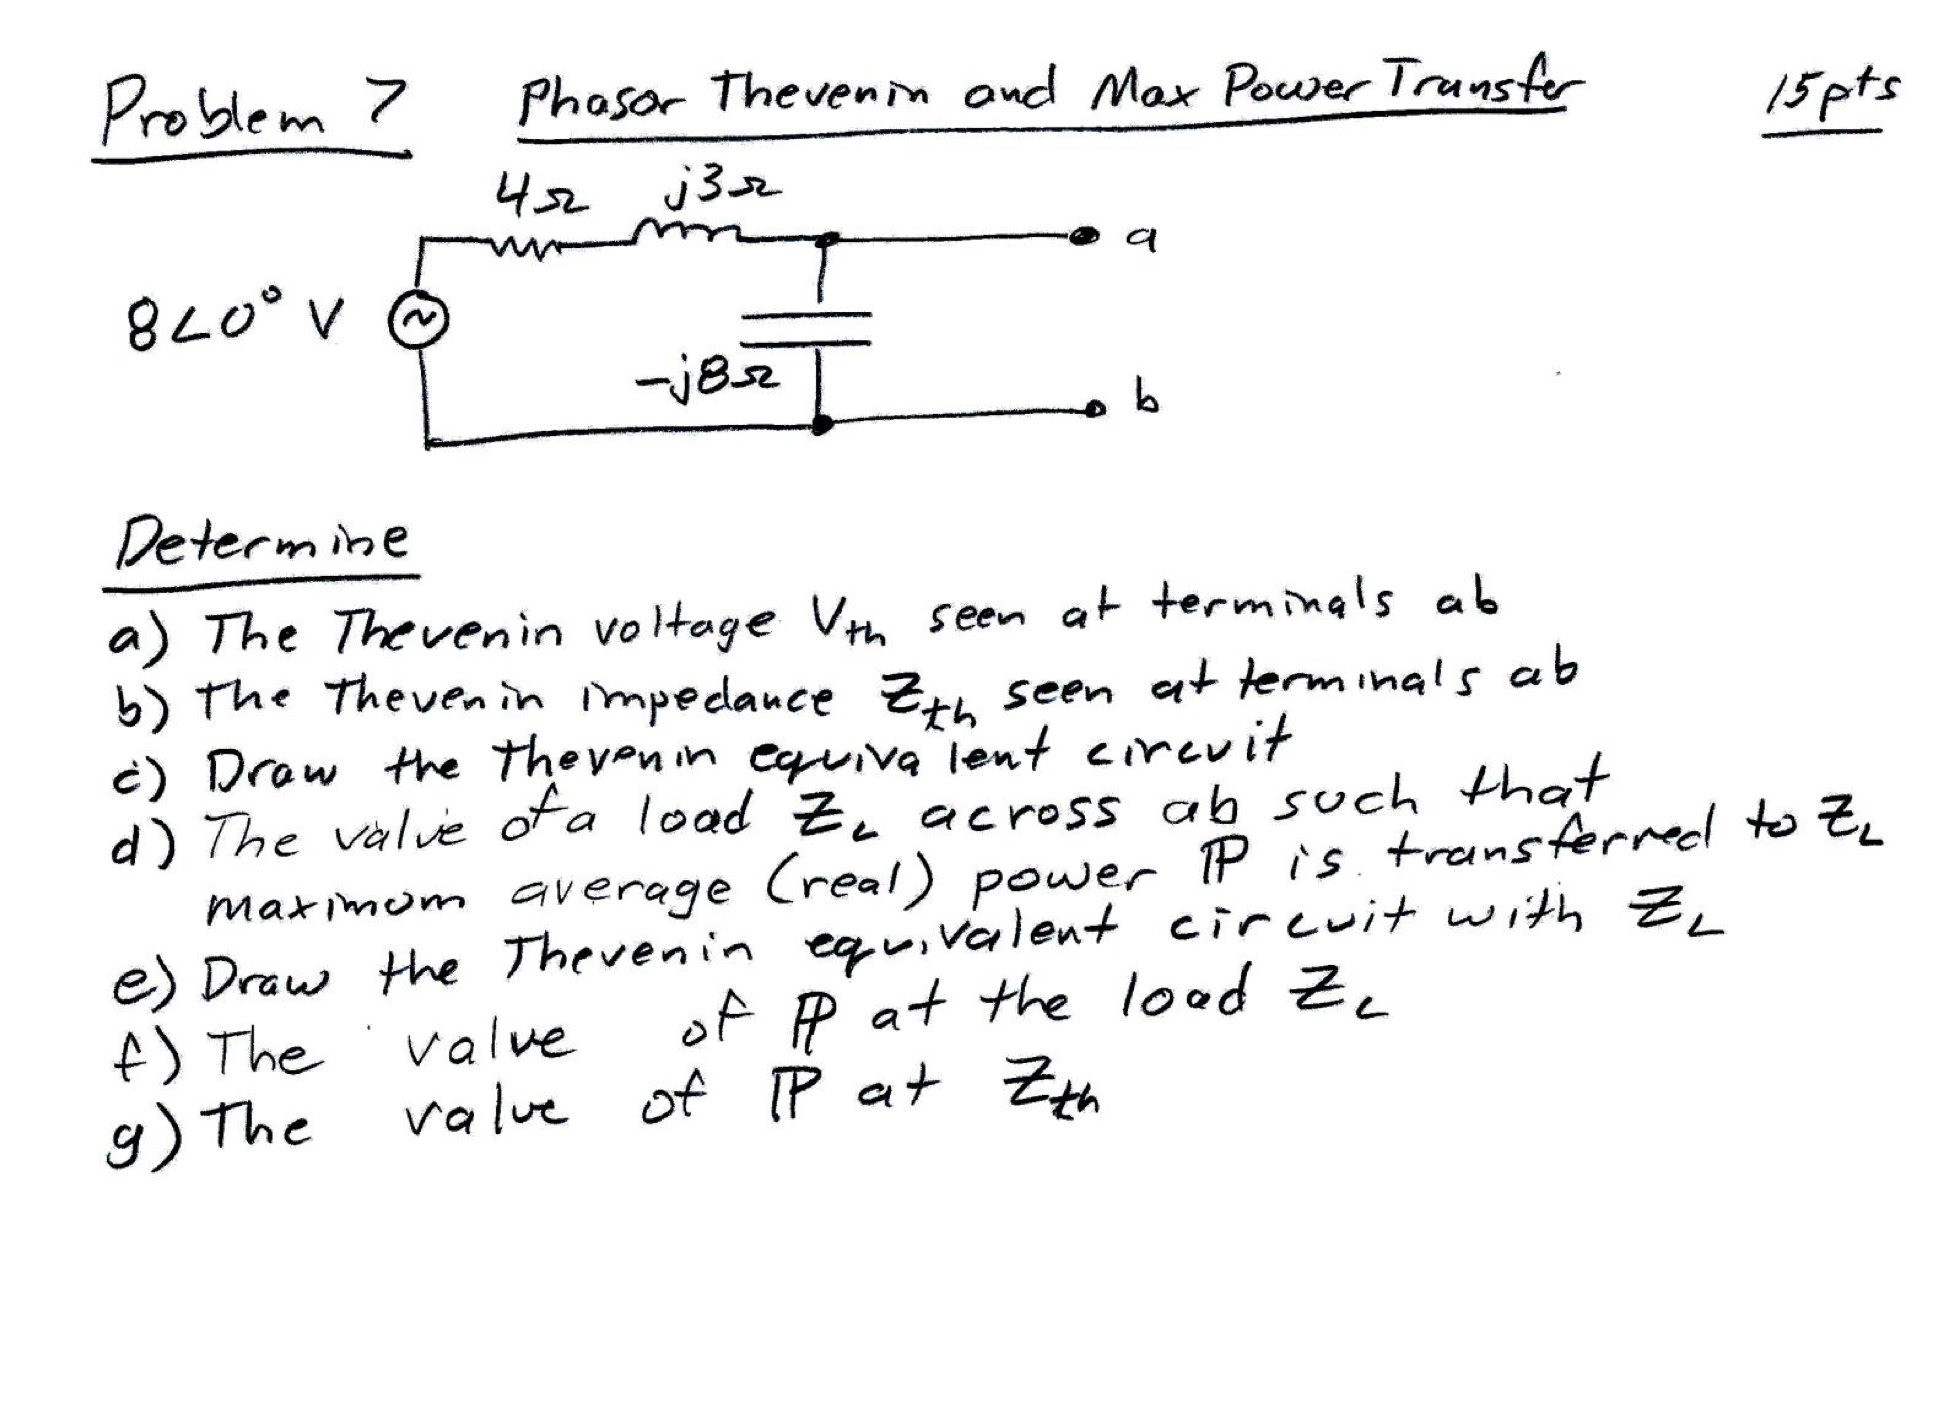 Problem 7 Phasor Thevenin and Max Power Transfer 15pts
4Ω j3Ω
a
8∠0° V
-j8Ω
b
Determine
a) The Thevenin voltage Vth seen at terminals ab
b) The Thevenin impedance Zth seen at terminals ab
c) Draw the Thevenin equivalent circuit
d) The value of a load ZL across ab such that
maximum average (real) power ℙ is transferred to ZL
e) Draw the Thevenin equivalent circuit with ZL
f) The value of ℙ at the load ZL
g) The value of ℙ at Zth